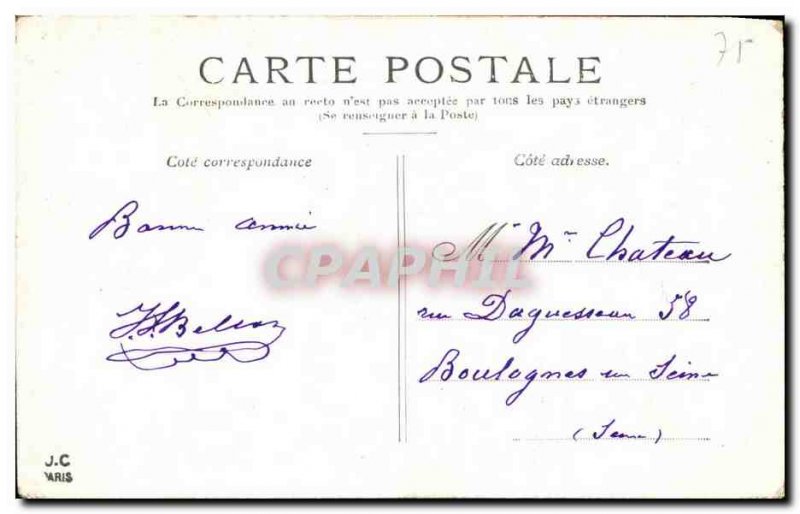 75
CARTE POSTALE
La Correspondance au recto n'est pas acceptée par tous les pays étrangers
(Se renseigner à la Poste)
Coté correspondance
Côté adresse.
Bonne année
Mr Mr Chateau
CPAPHIL
rue Daguesseau 58
Boulognes sur Seine
(Seine)
J.C
PARIS